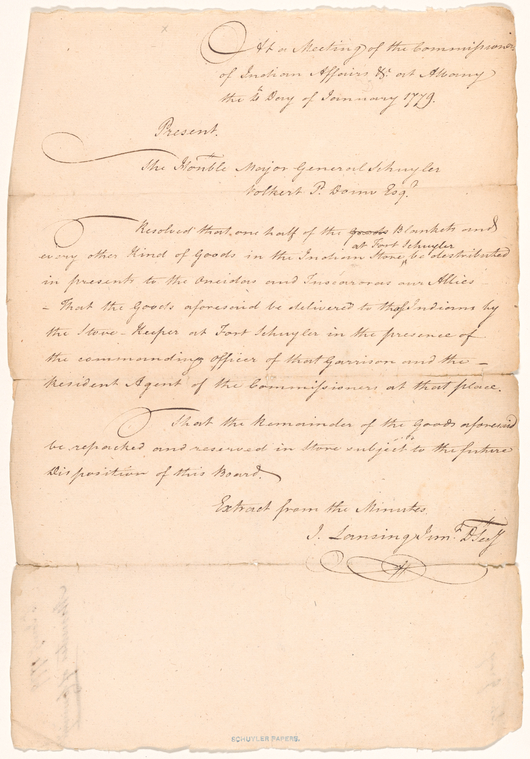 At a Meeting of the Commissioners
of Indian Affairs &c at Albany
the Day of January 1779.
Present.
The Honble Major General Schuyler
Volkert P. Douw Esqr
Resolved that one half of the goods Blankets and
at Fort Schuyler
every other Kind of Goods in the Indian Store be distributed
in presents to the Oneidas and Tuscaroras our Allies
- That the Goods aforesaid be delivered to the Indians by
the Store-Keeper at Fort Schuyler in the presence of
the commanding Officer of that Garrison and the -
Resident Agent of the Commissioners at that place.
That the Remainder of the Goods aforesaid
be repacked and reserved in Store subject to the future
Disposition of this Board.
Extract from the Minutes
J. Lansing Junr D Secy
SCHUYLER PAPERS.